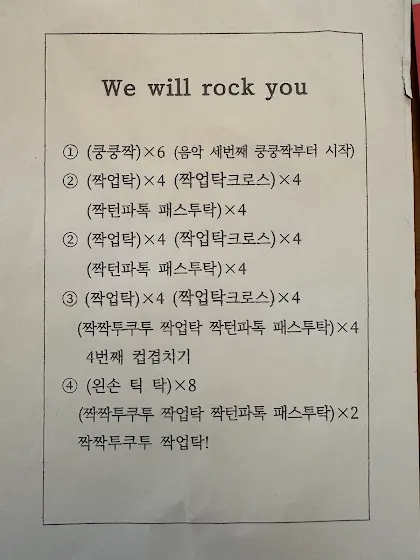 We will rock you
① (쿵쿵짝)×6 (음악 세번째 쿵쿵짝부터 시작)
② (짝업탁)×4 (짝업탁크로스)×4
(짝턴파톡 패스투탁)×4
② (짝업탁)×4 (짝업탁크로스)×4
(짝턴파톡 패스투탁)×4
③ (짝업탁)×4 (짝업탁크로스)×4
(짝짝투쿠투 짝업탁 짝턴파톡 패스투탁)×4
4번째 컵겹치기
④ (왼손 틱 탁)×8
(짝짝투쿠투 짝업탁 짝턴파톡 패스투탁)×2
짝짝투쿠투 짝업탁!